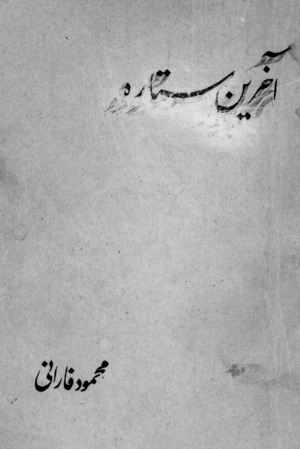 آخرین ستاره
محمود فارانی